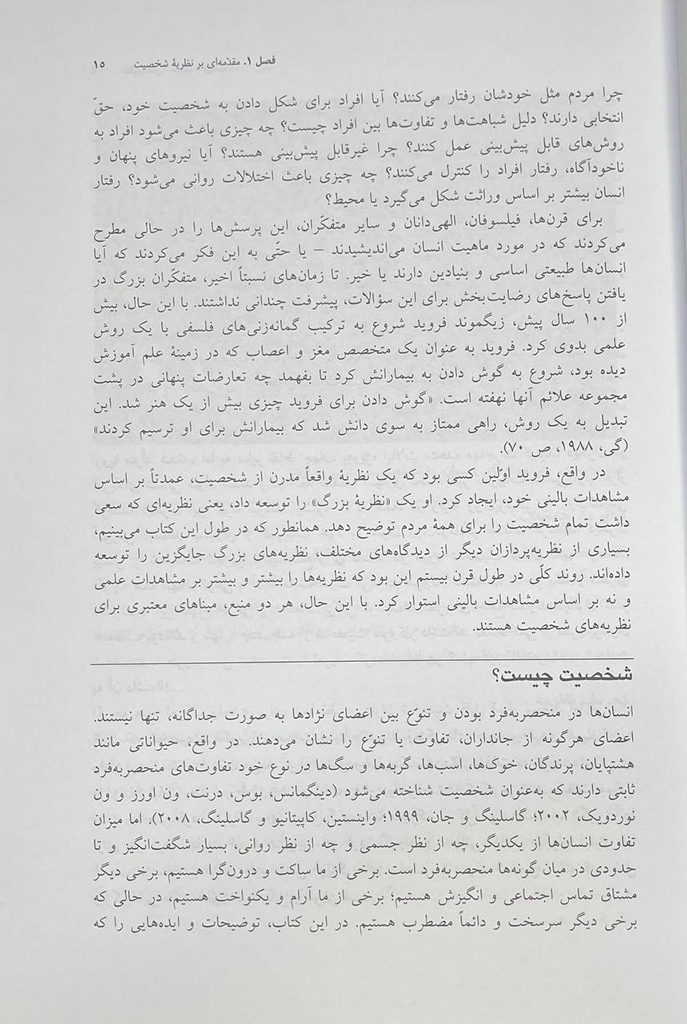 فصل ۱. مقدّمه‌ای بر نظریهٔ شخصیت ۱۵
چرا مردم مثل خودشان رفتار می‌کنند؟ آیا افراد برای شکل دادن به شخصیت خود، حقّ
انتخابی دارند؟ دلیل شباهت‌ها و تفاوت‌ها بین افراد چیست؟ چه چیزی باعث می‌شود افراد به
روش‌های قابل پیش‌بینی عمل کنند؟ چرا غیرقابل پیش‌بینی هستند؟ آیا نیروهای پنهان و
ناخودآگاه، رفتار افراد را کنترل می‌کنند؟ چه چیزی باعث اختلالات روانی می‌شود؟ رفتار
انسان بیشتر بر اساس وراثت شکل می‌گیرد یا محیط؟
برای قرن‌ها، فیلسوفان، الهی‌دانان و سایر متفکّران، این پرسش‌ها را در حالی مطرح
می‌کردند که در مورد ماهیت انسان می‌اندیشیدند – یا حتّی به این فکر می‌کردند که آیا
انسان‌ها طبیعتی اساسی و بنیادین دارند یا خیر. تا زمان‌های نسبتاً اخیر، متفکّران بزرگ در
یافتن پاسخ‌های رضایت‌بخش برای این سؤالات، پیشرفت چندانی نداشتند. با این حال، بیش
از ۱۰۰ سال پیش، زیگموند فروید شروع به ترکیب گمانه‌زنی‌های فلسفی با یک روش
علمی بدوی کرد. فروید به عنوان یک متخصص مغز و اعصاب که در زمینهٔ علم آموزش
دیده بود، شروع به گوش دادن به بیمارانش کرد تا بفهمد چه تعارضات پنهانی در پشت
مجموعه علائم آنها نهفته است. «گوش دادن برای فروید چیزی بیش از یک هنر شد. این
تبدیل به یک روش، راهی ممتاز به سوی دانش شد که بیمارانش برای او ترسیم کردند»
(گی، ۱۹۸۸، ص ۷۰).
در واقع، فروید اوّلین کسی بود که یک نظریهٔ واقعاً مدرن از شخصیت، عمدتاً بر اساس
مشاهدات بالینی خود، ایجاد کرد. او یک «نظریهٔ بزرگ» را توسعه داد، یعنی نظریه‌ای که سعی
داشت تمام شخصیت را برای همهٔ مردم توضیح دهد. همانطور که در طول این کتاب می‌بینیم،
بسیاری از نظریه‌پردازان دیگر از دیدگاه‌های مختلف، نظریه‌های بزرگ جایگزین را توسعه
داده‌اند. روند کلّی در طول قرن بیستم این بود که نظریه‌ها را بیشتر و بیشتر بر مشاهدات علمی
و نه بر اساس مشاهدات بالینی استوار کرد. با این حال، هر دو منبع، مبناهای معتبری برای
نظریه‌های شخصیت هستند.
شخصیت چیست؟
انسان‌ها در منحصربه‌فرد بودن و تنوّع بین اعضای نژادها به صورت جداگانه، تنها نیستند.
اعضای هرگونه از جانداران، تفاوت یا تنوّع را نشان می‌دهند. در واقع، حیواناتی مانند
هشتپایان، پرندگان، خوک‌ها، اسب‌ها، گربه‌ها و سگ‌ها در نوع خود تفاوت‌های منحصربه‌فرد
ثابتی دارند که به‌عنوان شخصیت شناخته می‌شود (دینگمانس، بوس، درنت، ون اورز و ون
نوردویک، ۲۰۰۲؛ گاسلینگ و جان، ۱۹۹۹؛ واینستین، کاپیتانیو و گاسلینگ، ۲۰۰۸). اما میزان
تفاوت انسان‌ها از یکدیگر، چه از نظر جسمی و چه از نظر روانی، بسیار شگفت‌انگیز و تا
حدودی در میان گونه‌ها منحصربه‌فرد است. برخی از ما ساکت و درون‌گرا هستیم، برخی دیگر
مشتاق تماس اجتماعی و انگیزش هستیم؛ برخی از ما آرام و یکنواخت هستیم، در حالی که
برخی دیگر سرسخت و دائماً مضطرب هستیم. در این کتاب، توضیحات و ایده‌هایی را که